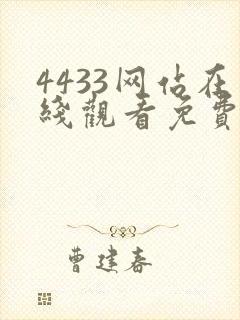 4433网站在
綫觀看免費
曹建春